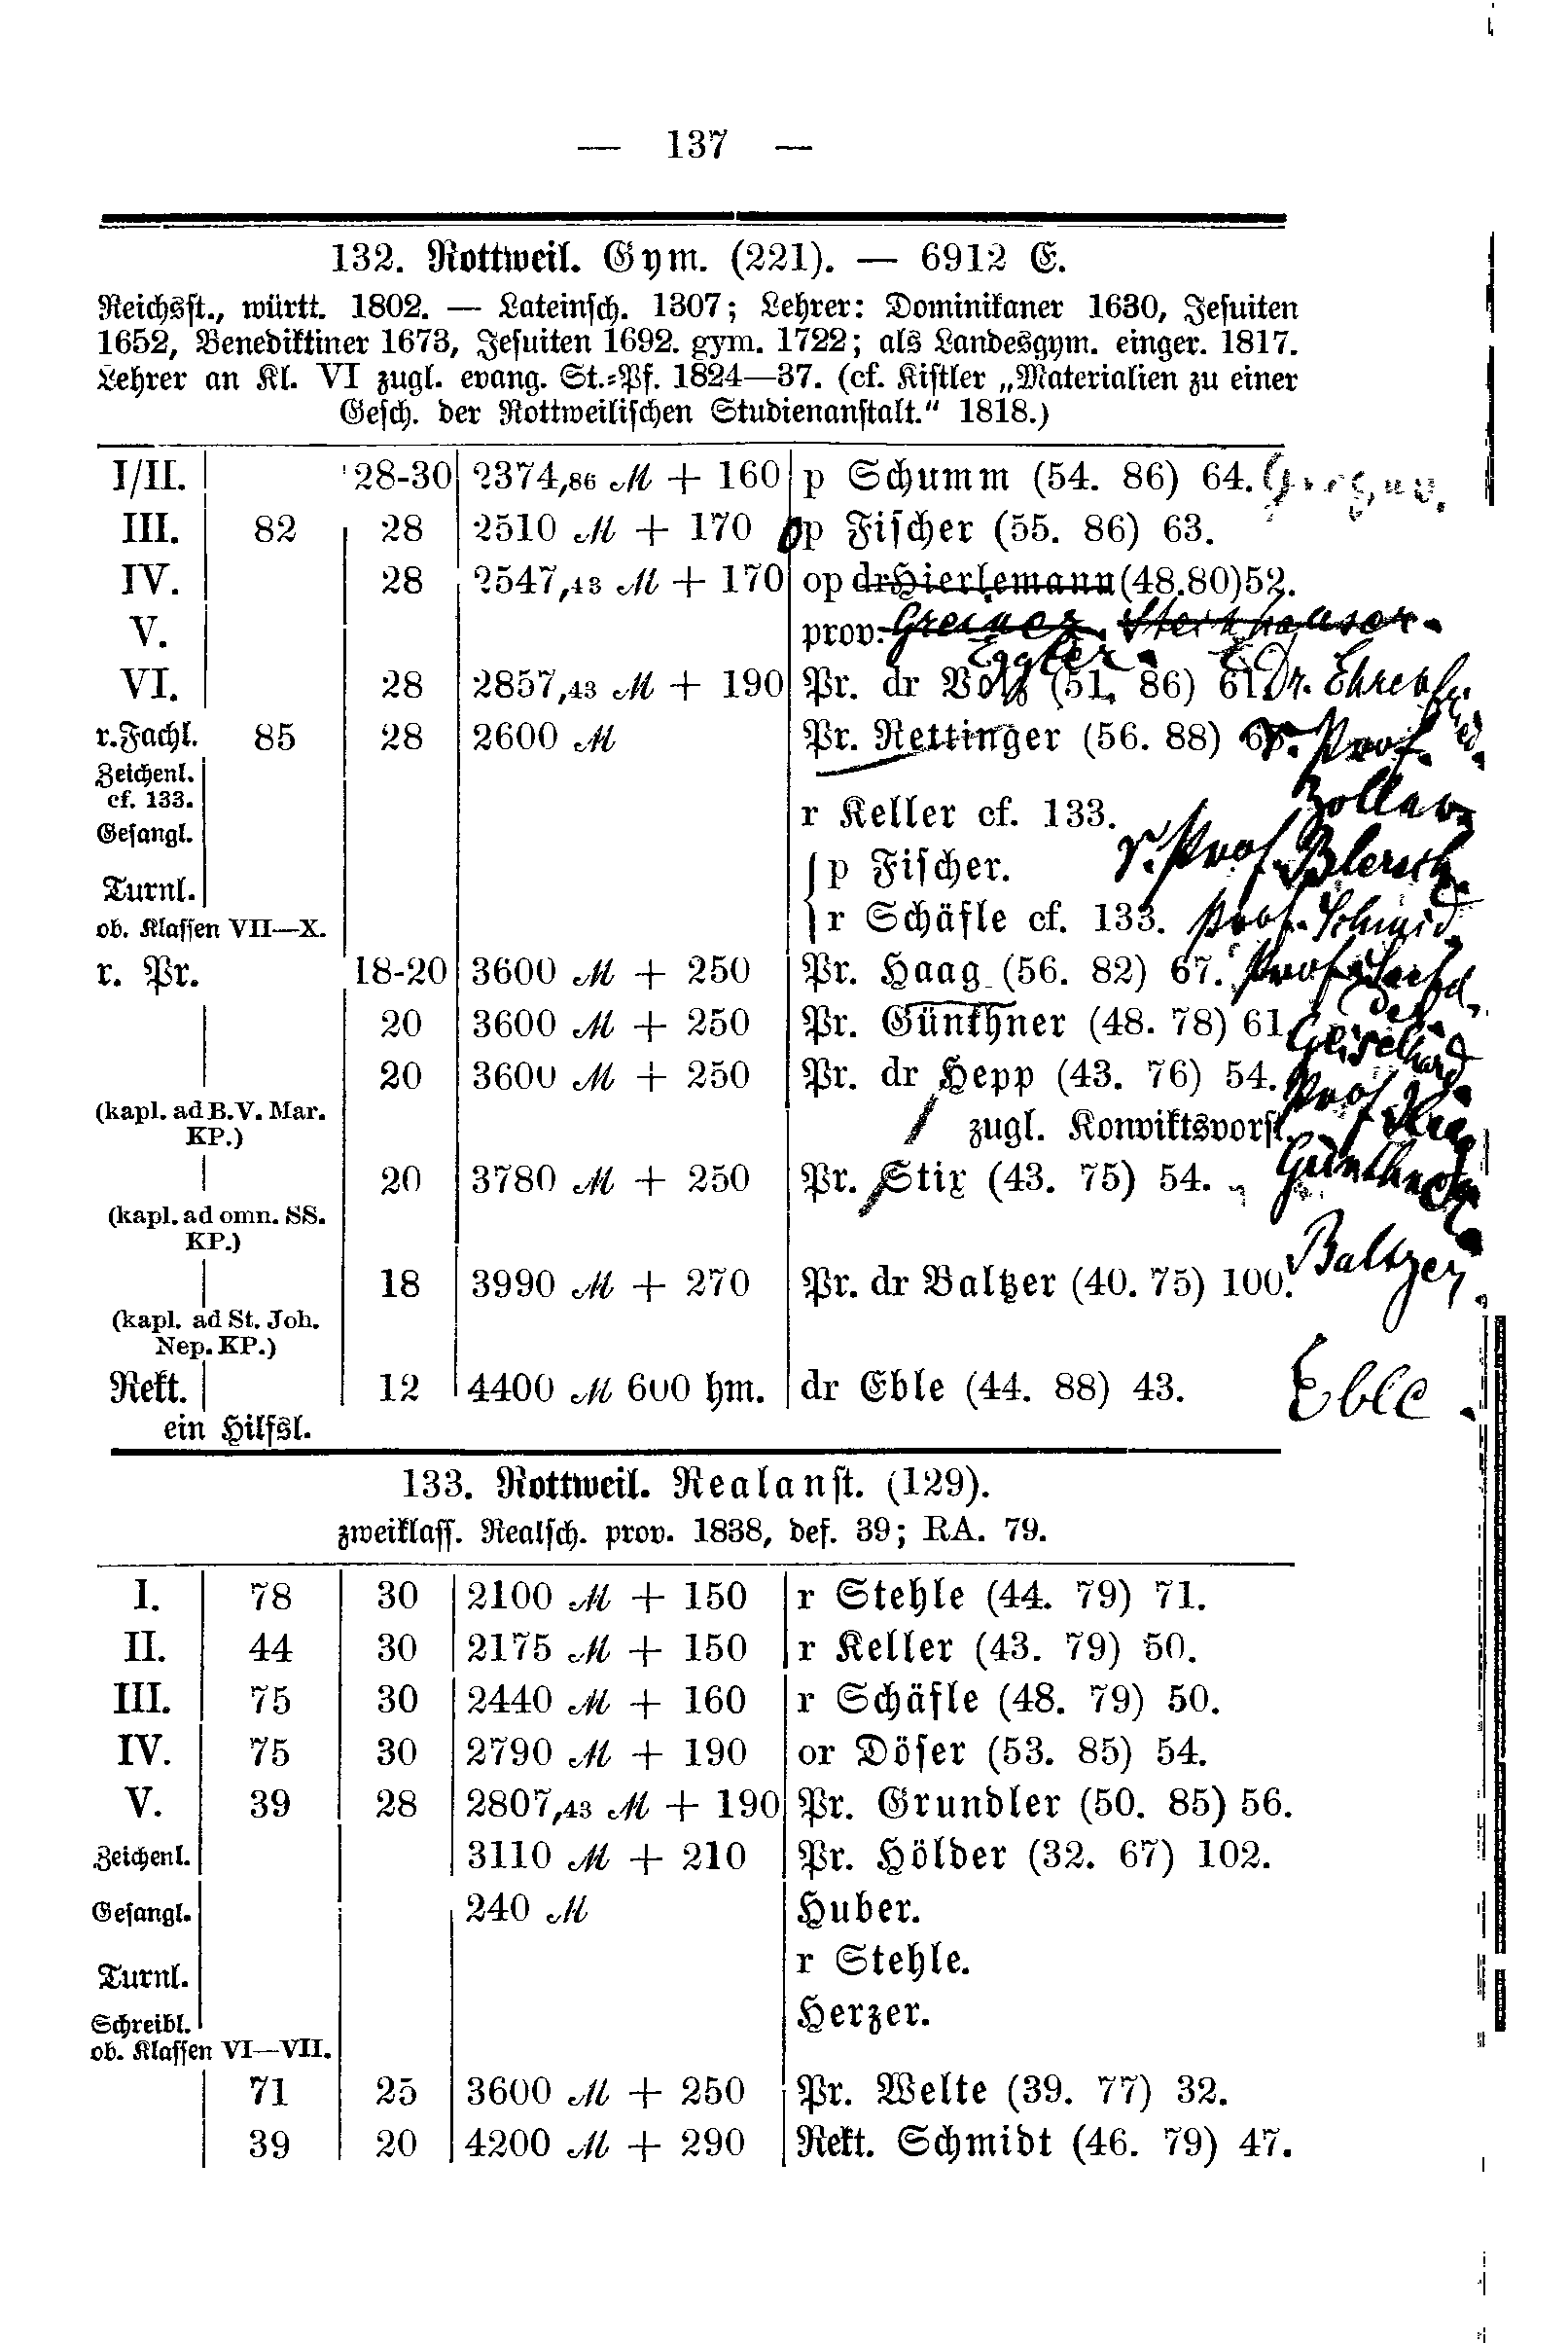 — 137 —
132. Rottweil. Gym. (221). — 6912 E.
Reichsst., württ. 1802. — Lateinsch. 1307; Lehrer: Dominikaner 1630, Jesuiten
1652, Benediktiner 1673, Jesuiten 1692. gym. 1722; als Landesgym. einger. 1817.
Lehrer an Kl. VI zugl. evang. St.=Pf. 1824—37. (cf. Kistler „Materialien zu einer
Gesch. der Rottweilischen Studienanstalt." 1818.)
I/II. 28-30 2374,86 ℳ + 160 p Schumm (54. 86) 64.
III. 82 28 2510 ℳ + 170 p Fischer (55. 86) 63.
IV. 28 2547,43 ℳ + 170 op dr Hierlemann (48.80) 52.
V. prov. Greiner. Steinhauser.
Eggler.
VI. 28 2857,43 ℳ + 190 Pr. dr Volz (51. 86) 61. Dr. Ehrenfried.
r. Fachl. 85 28 2600 ℳ Pr. Rettinger (56. 88) r. Prof.
Zeichenl.
cf. 133. r Keller cf. 133.
Gesangl. r. Prof. Blersch.
Turnl. p Fischer.
r Schäfle cf. 133. Prof. Schmid
ob. Klassen VII—X.
r. Pr. 18-20 3600 ℳ + 250 Pr. Haag (56. 82) 67. Prof.
20 3600 ℳ + 250 Pr. Günthner (48. 78) 61.
20 3600 ℳ + 250 Pr. dr Hepp (43. 76) 54. Prof.
(kapl. ad B.V. Mar.
KP.) zugl. Konviktsvorst.
20 3780 ℳ + 250 Pr. Stix (43. 75) 54. Günthner
(kapl. ad omn. SS.
KP.)
18 3990 ℳ + 270 Pr. dr Baltzer (40. 75) 100. Baltzer.
(kapl. ad St. Joh.
Nep. KP.)
Rekt. 12 4400 ℳ 600 hm. dr Eble (44. 88) 43. Eble.
ein Hilfsl.
133. Rottweil. Realanst. (129).
zweiklass. Realsch. prov. 1838, def. 39; RA. 79.
I. 78 30 2100 ℳ + 150 r Stehle (44. 79) 71.
II. 44 30 2175 ℳ + 150 r Keller (43. 79) 50.
III. 75 30 2440 ℳ + 160 r Schäfle (48. 79) 50.
IV. 75 30 2790 ℳ + 190 or Döser (53. 85) 54.
V. 39 28 2807,43 ℳ + 190 Pr. Grundler (50. 85) 56.
Zeichenl. 3110 ℳ + 210 Pr. Hölder (32. 67) 102.
Gesangl. 240 ℳ Huber.
Turnl. r Stehle.
Schreibl. Herzer.
ob. Klassen VI—VII.
71 25 3600 ℳ + 250 Pr. Welte (39. 77) 32.
39 20 4200 ℳ + 290 Rekt. Schmidt (46. 79) 47.